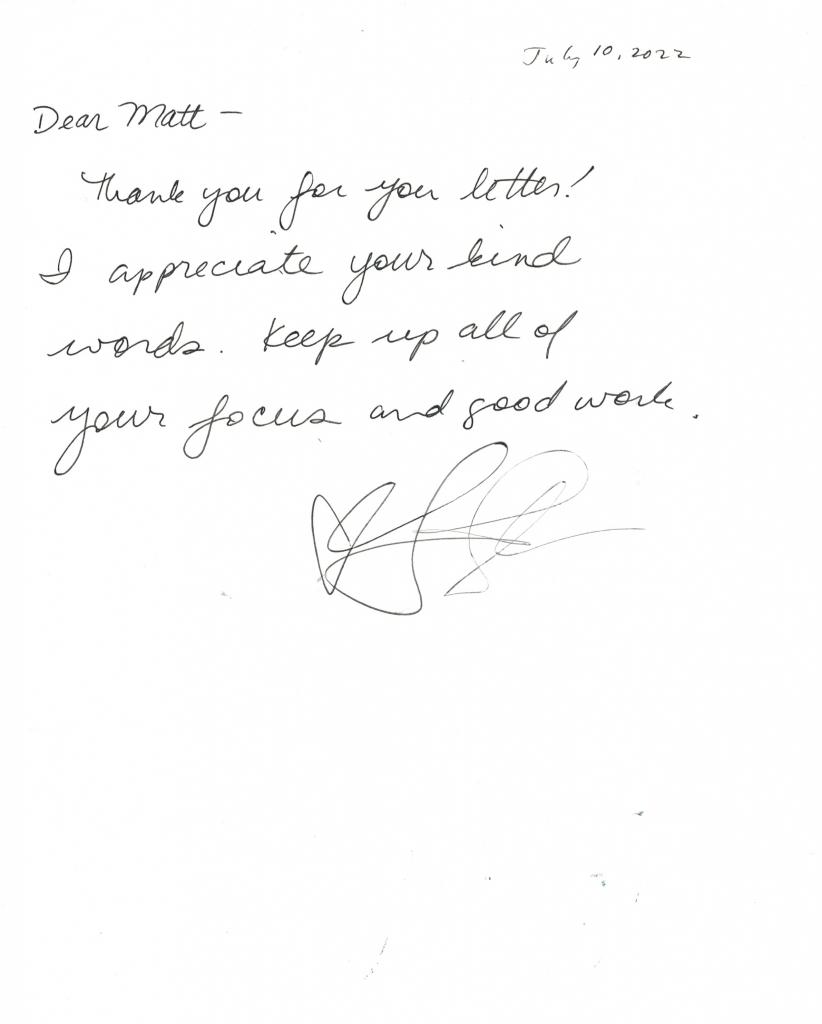 July 10, 2022
Dear Matt –
Thank you for your letter!
I appreciate your kind
words. Keep up all of
your focus and good work.